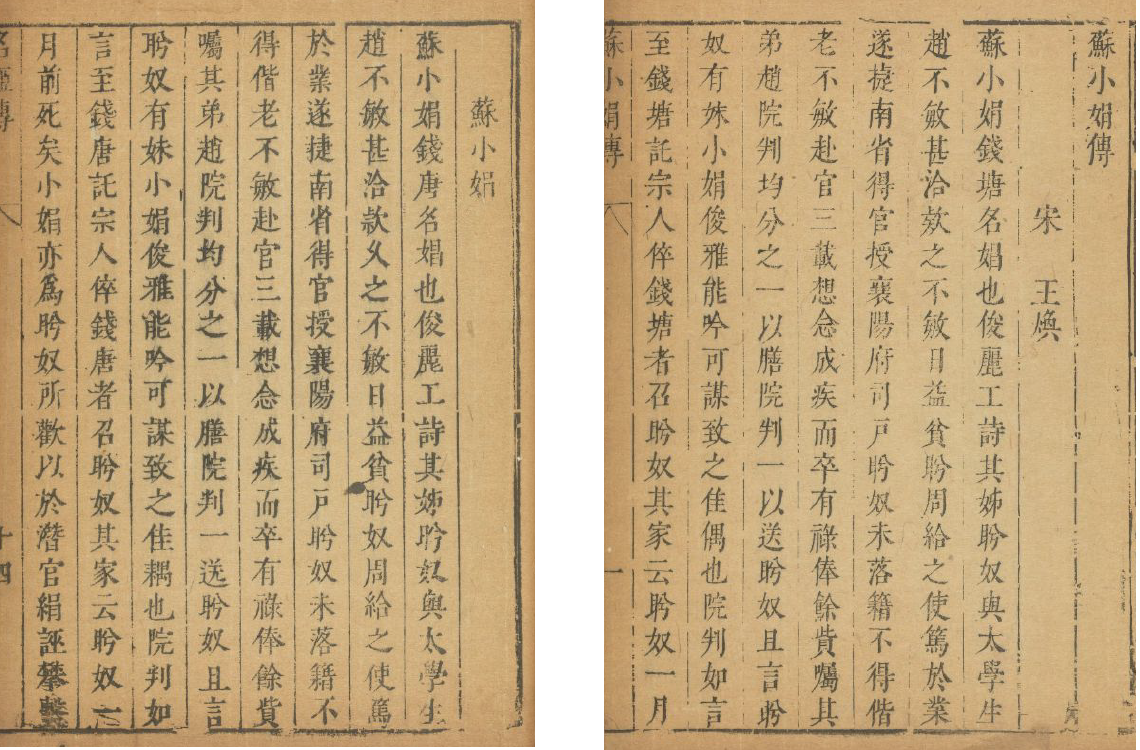 蘇小娟
蘇小娟錢唐名娼也俊麗工詩其姊盻奴與太學生
趙不敏甚洽欵久之不敏日益貧盻奴周給之使篤
於業遂捷南省得官授襄陽府司戸盻奴未落籍不
得偕老不敏赴官三載想念成疾而卒有祿俸餘貲
囑其弟趙院判均分之一以膳院判一送盻奴且言
盻奴有妹小娟俊雅能吟可謀致之佳耦也院判如
言至錢唐託宗人倅錢唐者召盻奴其家云盻奴一
月前死矣小娟亦爲盻奴所歡以於潛官絹誣攀繫
傳
十四
蘇小娟傳
宋 王煥
蘇小娟錢塘名娼也俊麗工詩其姊盻奴與太學生
趙不敏甚洽欵之不敏日益貧盻周給之使篤於業
遂㨗南省得官授襄陽府司戸盻奴未落籍不得偕
老不敏赴官三載想念成疾而卒有祿俸餘貲囑其
弟趙院判均分之一以膳院判一以送盻奴且言盻
奴有妹小娟俊雅能吟可謀致之佳偶也院判如言
至錢塘託宗人倅錢塘者召盻奴其家云盻奴一月
蘇小娟傳
一